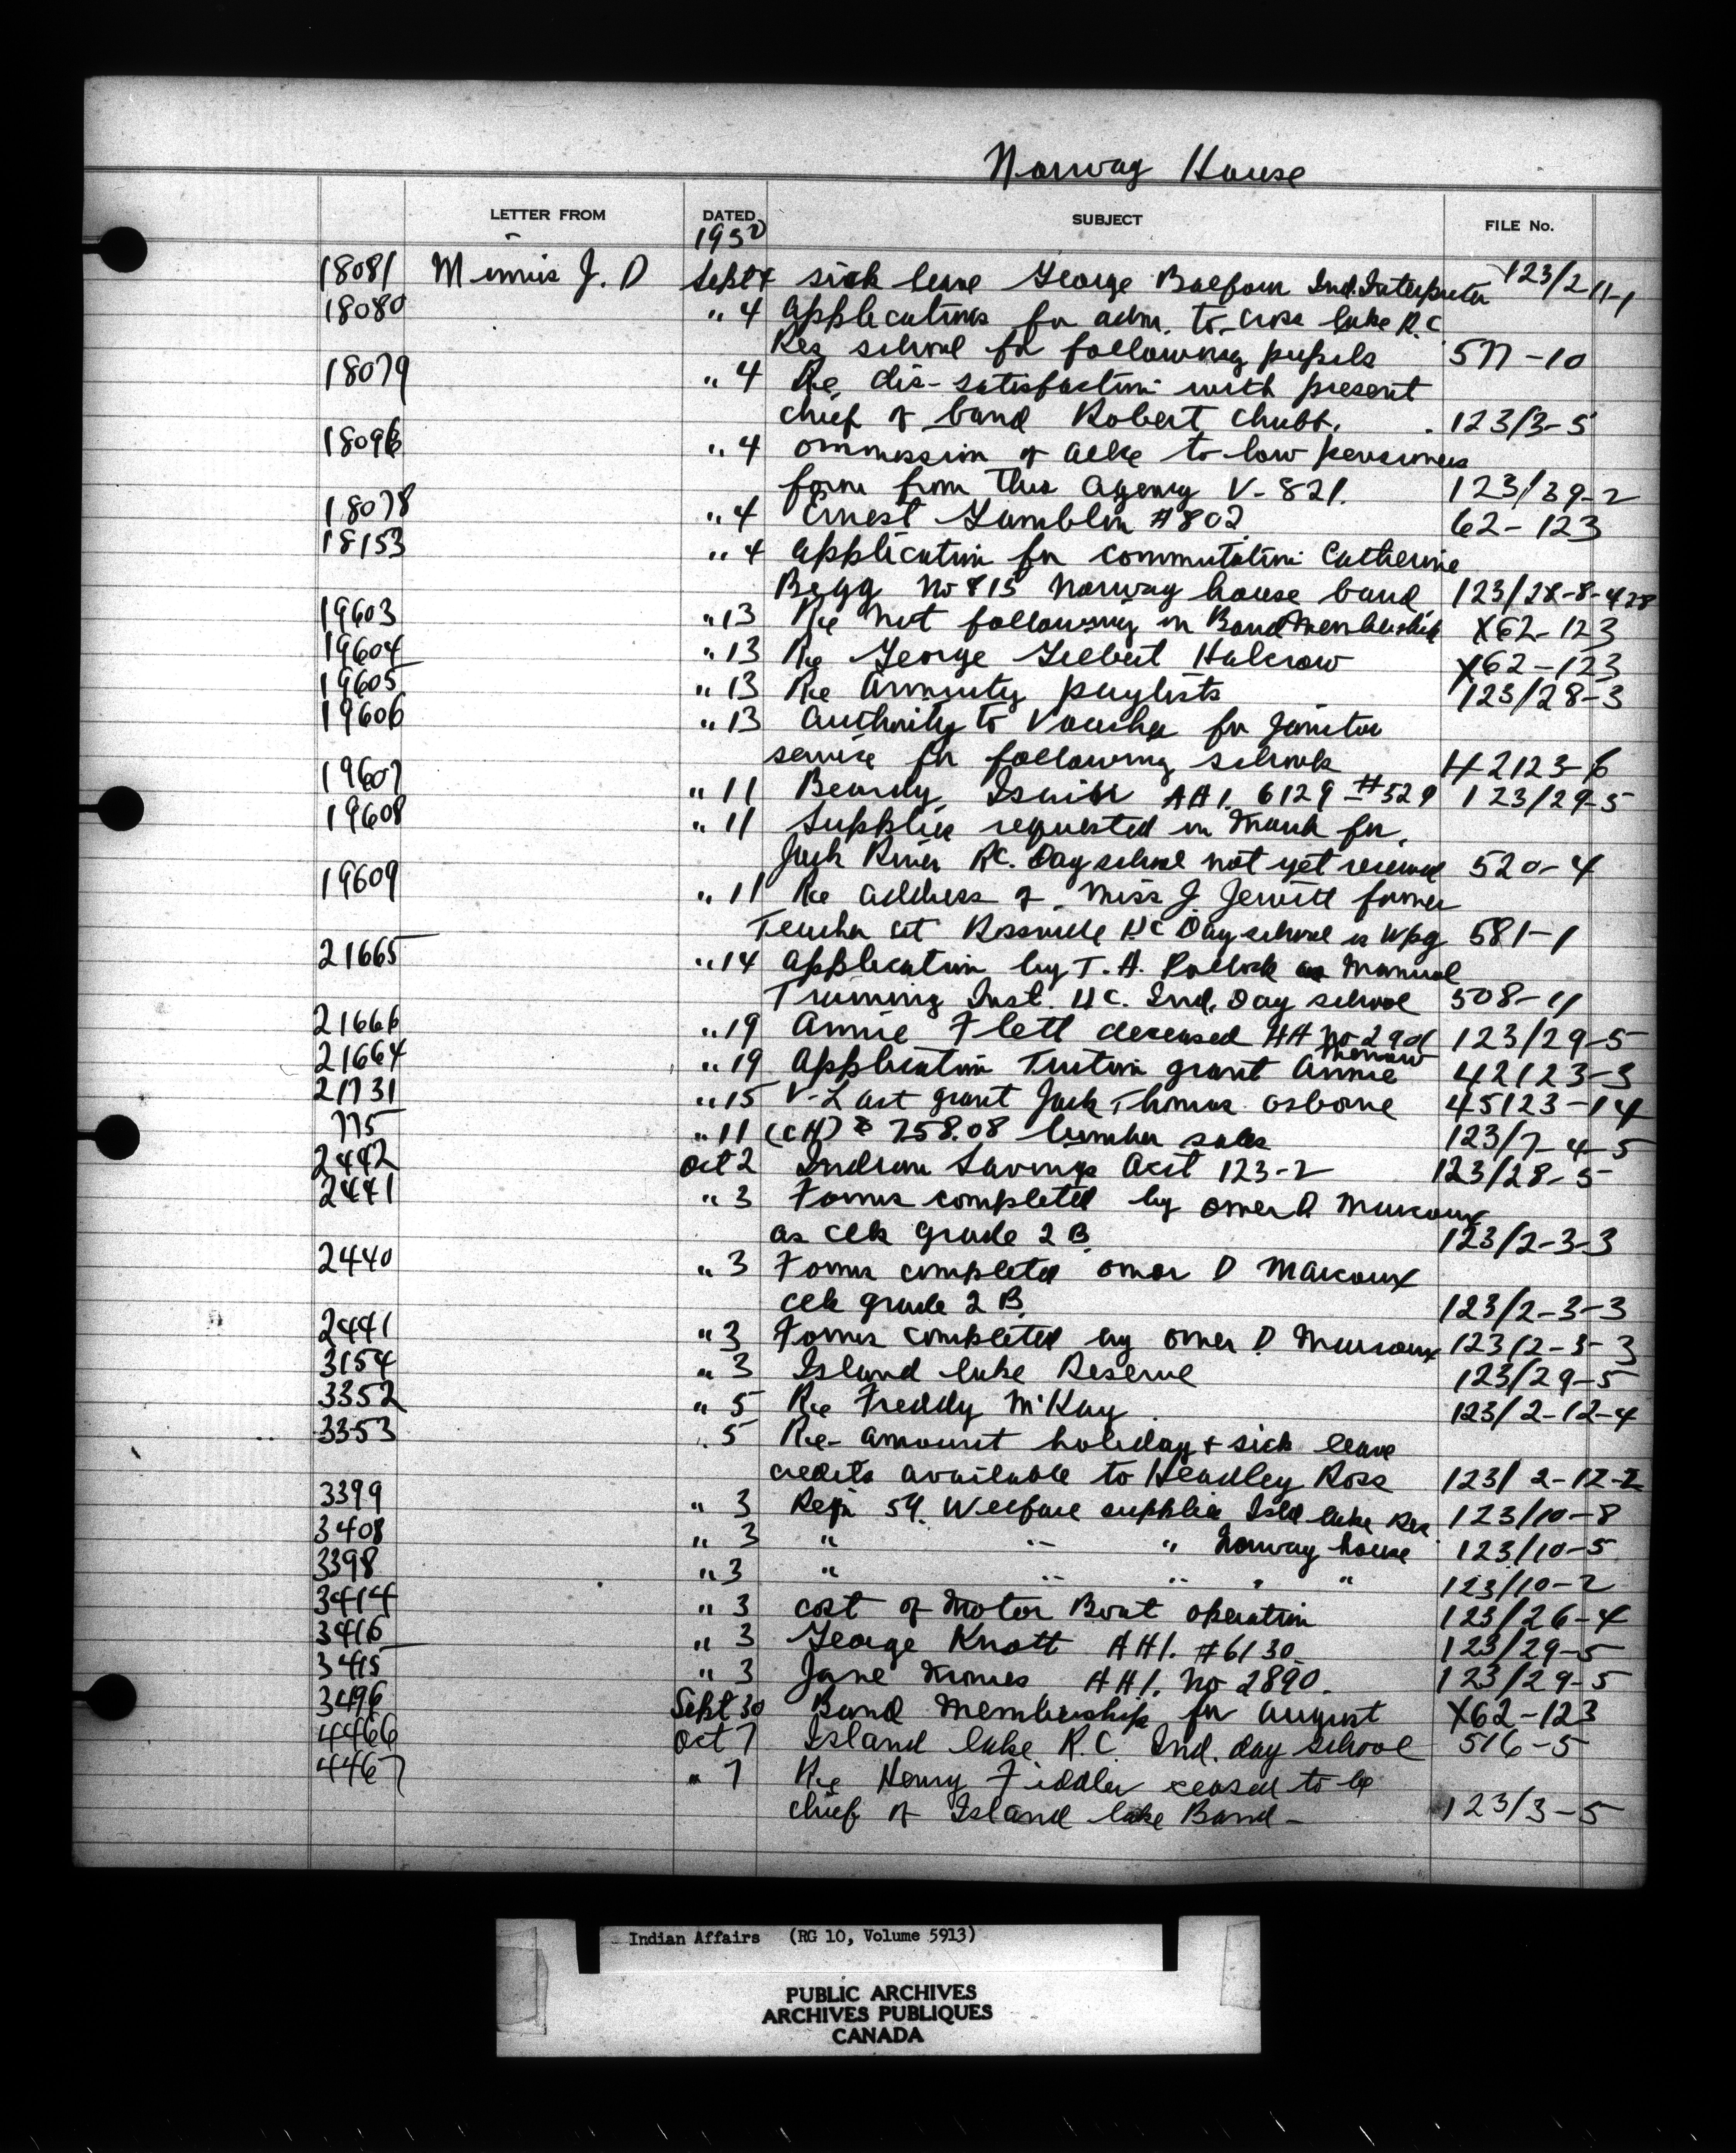 Norway House
LETTER FROM DATED SUBJECT FILE No.
1950
18081 J. D Sept 4 sick leave George Balfour Ind. Interpreter 123/2-11-1
18080 " 4 applications for adm. to cross lake R.C
Res school for following pupils 577-10
18079 " 4 Re dis-satisfaction with present
chief of band Robert Chubb. 123/3-5
" 4 ommission of to low pensioners
form from this agency V-821. 123/39-2
18078 " 4 Ernest Gamblin #802 62-123
18153 " 4 application for commutation Catherine
Begg No 815 Norway house band 123/28-8-428
19603 " 13 Re not following in Band Membership X62-123
19604 " 13 Re George Gilbert Halcrow X62-123
19605 " 13 Re annuity paylists 123/28-3
19606 " 13 authority to Voucher for janitor
service for following schools 42123-6
19607 " 11 Beardy, AA1. 6129 - #529 123/29-5
19608 " 11 Supplies requested in March for
Jack River RC. Day school not yet received 520-4
19609 " 11 Re address of Miss J. Jewitt former
Teacher at Rossville UC Day school is Wpg 581-1
21665 " 14 application by T. A. Pollock as Manual
Training Inst. UC. Ind. Day school 508-11
21666 " 19 Annie Flett deceased AA No 123/29-5
21664 " 19 application Tuition grant Annie 42123-3
21731 " 15 V-Last grant Jack Thomas Osborne 45123-14
775 " 11 (CH) $ 758.08 lumber sales 123/7-4-5
2492 Oct 2 Indian Savings Acct 123-2 123/28-5
2441 " 3 Forms completed by omer D Marcoux
as clk grade 2 B. 123/2-3-3
2440 " 3 Forms completed omer D Marcoux
clk grade 2 B. 123/2-3-3
2441 " 3 Forms completed by omer D Marcoux 123/2-3-3
3154 " 3 Island lake Reserve 123/29-5
3352 " 5 Re Freddy McKay 123/2-12-4
3353 " 5 Re- amount holiday & sick leave
credits available to Headley Ross 123/2-12-2
3399 " 3 Reqn 59. Welfare supplies Isld lake Res 123/10-8
3408 " 3 " " " Norway house 123/10-5
3398 " 3 " " " " " 123/10-2
3414 " 3 cost of Motor Boat operation 123/26-4
3416 " 3 George Knott AA1. #6130 123/29-5
3415 " 3 Jane AA1. No 2890. 123/29-5
3496 Sept 30 Band Membership for August X62-123
4466 Oct 7 Island lake R.C. Ind. day school 516-5
4467 " 7 Re Henry Fiddler ceased to be
chief of Island lake Band - 123/3-5
Indian Affairs (RG 10, Volume 5913)
PUBLIC ARCHIVES
ARCHIVES PUBLIQUES
CANADA